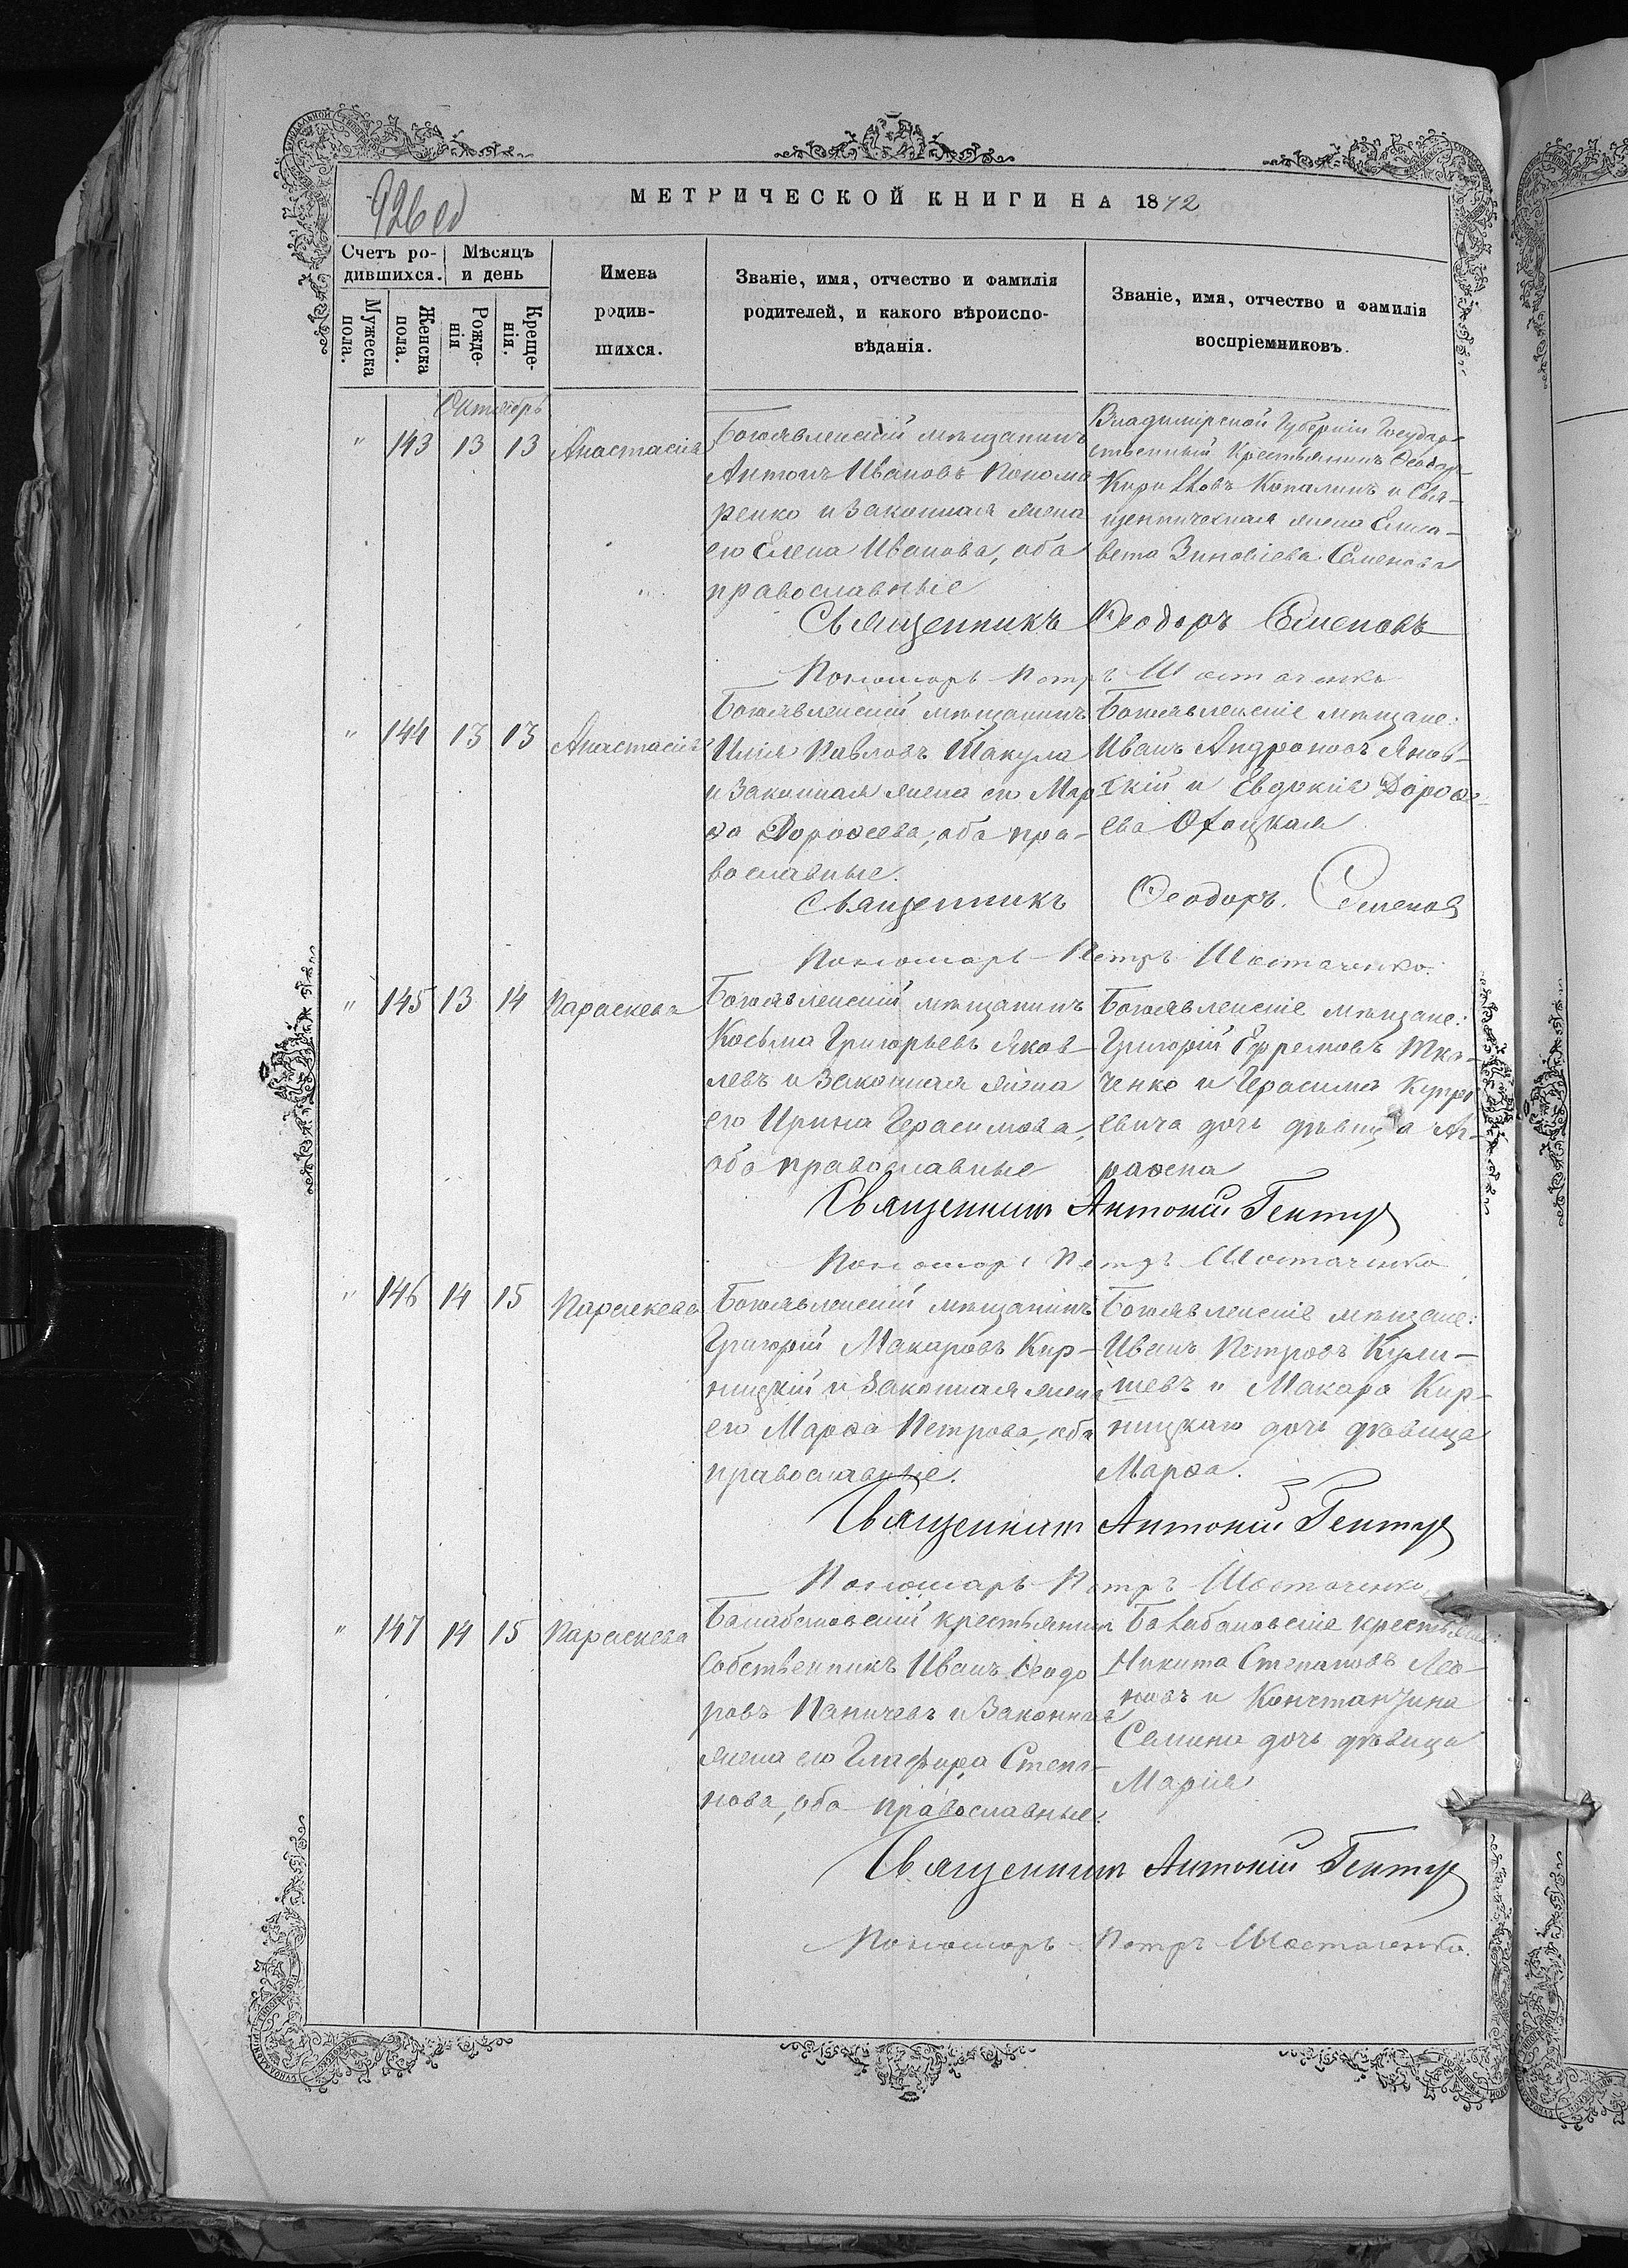 926 об
МЕТРИЧЕСКОЙ КНИГИ НА 1872
Счетъ ро-
дившихся.
Мѣсяцъ
и день
Имена
родив-
шихся.
Званіе, имя, отчество и фамилія
родителей, и какого вѣроиспо-
вѣданія.
Званіе, имя, отчество и фамилія
воспріемниковъ.
Мужеска
пола.
Женска
пола.
Рожде-
нія
Креще-
нія.
Октябрь
" 143 13 13 Анастасія
Богоявленскій мѣщанинъ
Антонъ Ивановъ Понома
ренко и законная жена
его Елена Иванова, оба
православные
Владимірской Губерніи Государ-
ственный Крестьянинъ Ѳеодоръ
Кириловъ Копалинъ и Свя-
щенническая жена Елиса-
вета Зиновіева Семенова
Священникъ Ѳеодоръ Семеновъ
Пономарь Петръ Шостаченко
" 144 13 13 Анастасія
Богоявленскій мѣщанинъ
Илія Павловъ Шакула
и законная жена его Мар
ѳа Дороѳеева, оба пра-
вославные.
Богоявленскіе мѣщане:
Иванъ Андроновъ Янов-
скій и Евдокія Дороѳе-
ева Охоцкая
Священникъ Ѳеодоръ Семеновъ
Пономарь Петръ Шостаченко.
" 145 13 14 Параскева
Богоявленскій мѣщанинъ
Косьма Григорьевъ Яков-
левъ и законная жена
его Ирина Герасимова,
оба православные
Богоявленскіе мѣщане:
Григорій Ефремовъ Тка-
ченко и Герасима Купрі
евича дочь дѣвица Аг-
раѳена
Священникъ Антоній Гентуя
Пономарь Петръ Шостаченко
" 146 14 15 Параскева
Богоявленскій мѣщанинъ
Григорій Макаровъ Кир-
ницкій и законная жена
его Марѳа Петрова, оба
православные.
Богоявленскіе мѣщане:
Иванъ Петровъ Кули-
шевъ и Макара Кир-
ницкаго дочь дѣвица
Марѳа.
Священникъ Антоній Гентуя
Пономарь Петръ Шостаченко
" 147 14 15 Параскева
Балабановскій крестьянинъ
собственникъ Иванъ Ѳеодо
ровъ Паничевъ и законная
жена его Глафира Степа-
нова, оба православные.
Балабановскіе крестьяне:
Никита Степановъ Лео-
новъ и Константина
Семина дочь дѣвица
Марія
Священникъ Антоній Гентуя
Пономарь Петръ Шостаченко.